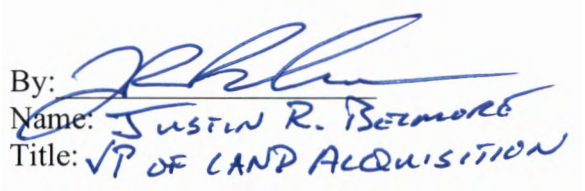 By:
Name: JUSTIN R. BELMORE
Title: VP OF LAND ACQUISITION